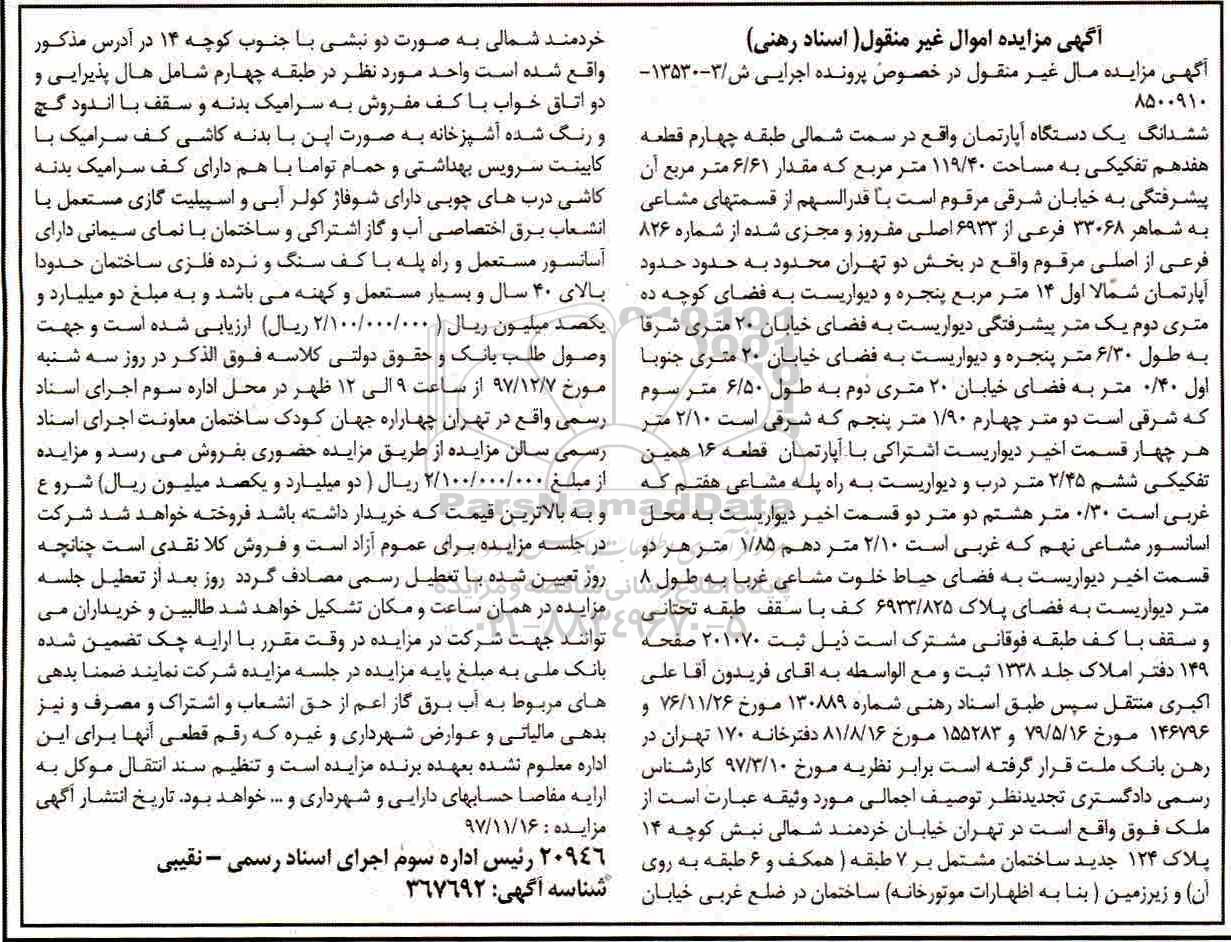 آگهی مزایده اموال غیر منقول( اسناد رهنی)
آگهی مزایده مال غیر منقول در خصوص پرونده اجرایی ش/۳-۱۳۵۳۰-
۸۵۰۰۹۱۰
ششدانگ یک دستگاه آپارتمان واقع در سمت شمالی طبقه چهارم قطعه
هفدهم تفکیکی به مساحت ۱۱۹/۴۰ متر مربع که مقدار ۶/۶۱ متر مربع آن
پیشرفتگی به خیابان شرقی مرقوم است با قدرالسهم از قسمتهای مشاعی
به شماهر ۳۳۰۶۸ فرعی از ۶۹۳۳ اصلی مفروز و مجزی شده از شماره ۸۲۶
فرعی از اصلی مرقوم واقع در بخش دو تهران محدود به حدود حدود
آپارتمان شمالا اول ۱۴ متر مربع پنجره و دیواریست به فضای کوچه ده
متری دوم یک متر پیشرفتگی دیواریست به فضای خیابان ۲۰ متری شرقا
به طول ۶/۳۰ متر پنجره و دیواریست به فضای خیابان ۲۰ متری جنوبا
اول ۰/۴۰ متر به فضای خیابان ۲۰ متری دوم به طول ۶/۵۰ متر سوم
که شرقی است دو متر چهارم ۱/۹۰ متر پنجم که شرقی است ۲/۱۰ متر
هر چهار قسمت اخیر دیواریست اشتراکی با آپارتمان قطعه ۱۶ همین
تفکیکی ششم ۲/۴۵ متر درب و دیواریست به راه پله مشاعی هفتم که
غربی است ۰/۳۰ متر هشتم دو متر دو قسمت اخیر دیواریست به محل
اسانسور مشاعی نهم که غربی است ۲/۱۰ متر دهم ۱/۸۵ متر هر دو
قسمت اخیر دیواریست به فضای حیاط خلوت مشاعی غربا به طول ۸
متر دیواریست به فضای پلاک ۶۹۳۳/۸۲۵ کف با سقف طبقه تحتانی
و سقف با کف طبقه فوقانی مشترک است ذیل ثبت ۲۰۱۰۷۰ صفحه
۱۴۹ دفتر املاک جلد ۱۳۳۸ ثبت و مع الواسطه به اقای فریدون آقا علی
اکبری منتقل سپس طبق اسناد رهنی شماره ۱۳۰۸۸۹ مورخ ۷۶/۱۱/۲۶ و
۱۴۶۷۹۶ مورخ ۷۹/۵/۱۶ و ۱۵۵۲۸۳ مورخ ۸۱/۸/۱۶ دفترخانه ۱۷۰ تهران در
رهن بانک ملت قرار گرفته است برابر نظریه مورخ ۹۷/۳/۱۰ کارشناس
رسمی دادگستری تجدیدنظر توصیف اجمالی مورد وثیقه عبارت است از
ملک فوق واقع است در تهران خیابان خردمند شمالی نبش کوچه ۱۴
پلاک ۱۲۴ جدید ساختمان مشتمل بر ۷ طبقه ( همکف و ۶ طبقه به روی
آن) و زیرزمین ( بنا به اظهارات موتورخانه) ساختمان در ضلع غربی خیابان
خردمند شمالی به صورت دو نبشی با جنوب کوچه ۱۴ در آدرس مذکور
واقع شده است واحد مورد نظر در طبقه چهارم شامل هال پذیرایی و
دو اتاق خواب با کف مفروش به سرامیک بدنه و سقف با اندود گچ
و رنگ شده آشپزخانه به صورت اپن با بدنه کاشی کف سرامیک با
کابینت سرویس بهداشتی و حمام تواما با هم دارای کف سرامیک بدنه
کاشی درب های چوبی دارای شوفاژ کولر آبی و اسپیلیت گازی مستعمل با
انشعاب برق اختصاصی آب و گاز اشتراکی و ساختمان با نمای سیمانی دارای
آسانسور مستعمل و راه پله با کف سنگ و نرده فلزی ساختمان حدودا
بالای ۴۰ سال و بسیار مستعمل و کهنه می باشد و به مبلغ دو میلیارد و
یکصد میلیون ریال ( ۲/۱۰۰/۰۰۰/۰۰۰ ریال) ارزیابی شده است و جهت
وصول طلب بانک و حقوق دولتی کلاسه فوق الذکر در روز سه شنبه
مورخ ۹۷/۱۲/۷ از ساعت ۹ الی ۱۲ ظهر در محل اداره سوم اجرای اسناد
رسمی واقع در تهران چهاراره جهان کودک ساختمان معاونت اجرای اسناد
رسمی سالن مزایده از طریق مزایده حضوری بفروش می رسد و مزایده
از مبلغ ۲/۱۰۰/۰۰۰/۰۰۰ ریال ( دو میلیارد و یکصد میلیون ریال) شروع
و به بالاترین قیمت که خریدار داشته باشد فروخته خواهد شد شرکت
در جلسه مزایده برای عموم آزاد است و فروش کلا نقدی است چنانچه
روز تعیین شده با تعطیل رسمی مصادف گردد روز بعد از تعطیل جلسه
مزایده در همان ساعت و مکان تشکیل خواهد شد طالبین و خریداران می
توانند جهت شرکت در مزایده در وقت مقرر با ارایه چک تضمین شده
بانک ملی به مبلغ پایه مزایده در جلسه مزایده شرکت نمایند ضمنا بدهی
های مربوط به آب برق گاز اعم از حق انشعاب و اشتراک و مصرف و نیز
بدهی مالیاتی و عوارض شهرداری و غیره که رقم قطعی آنها برای این
اداره معلوم نشده بعهده برنده مزایده است و تنظیم سند انتقال موکل به
ارایه مفاصا حسابهای دارایی و شهرداری و ... خواهد بود. تاریخ انتشار آگهی
مزایده : ۹۷/۱۱/۱۶
۲۰۹۴۶ رئیس اداره سوم اجرای اسناد رسمی – نقیبی
شناسه آگهی: ۳۶۷۶۹۲
ParsNamadData
پایگاه اطلاع رسانی مناقصه و مزایده
۰۲۱-۸۸۳۴۹۶۷۰-۵